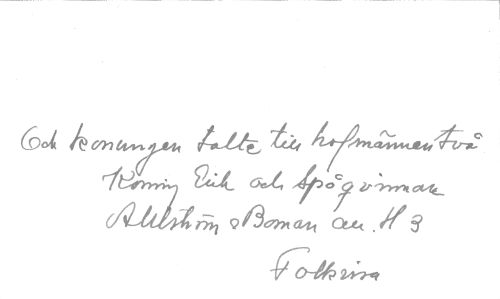 Och konungen talte till hofmännen två
Konung Erik och Spåqvinnan
Ahlström & Boman au. H 3
Folkvisa